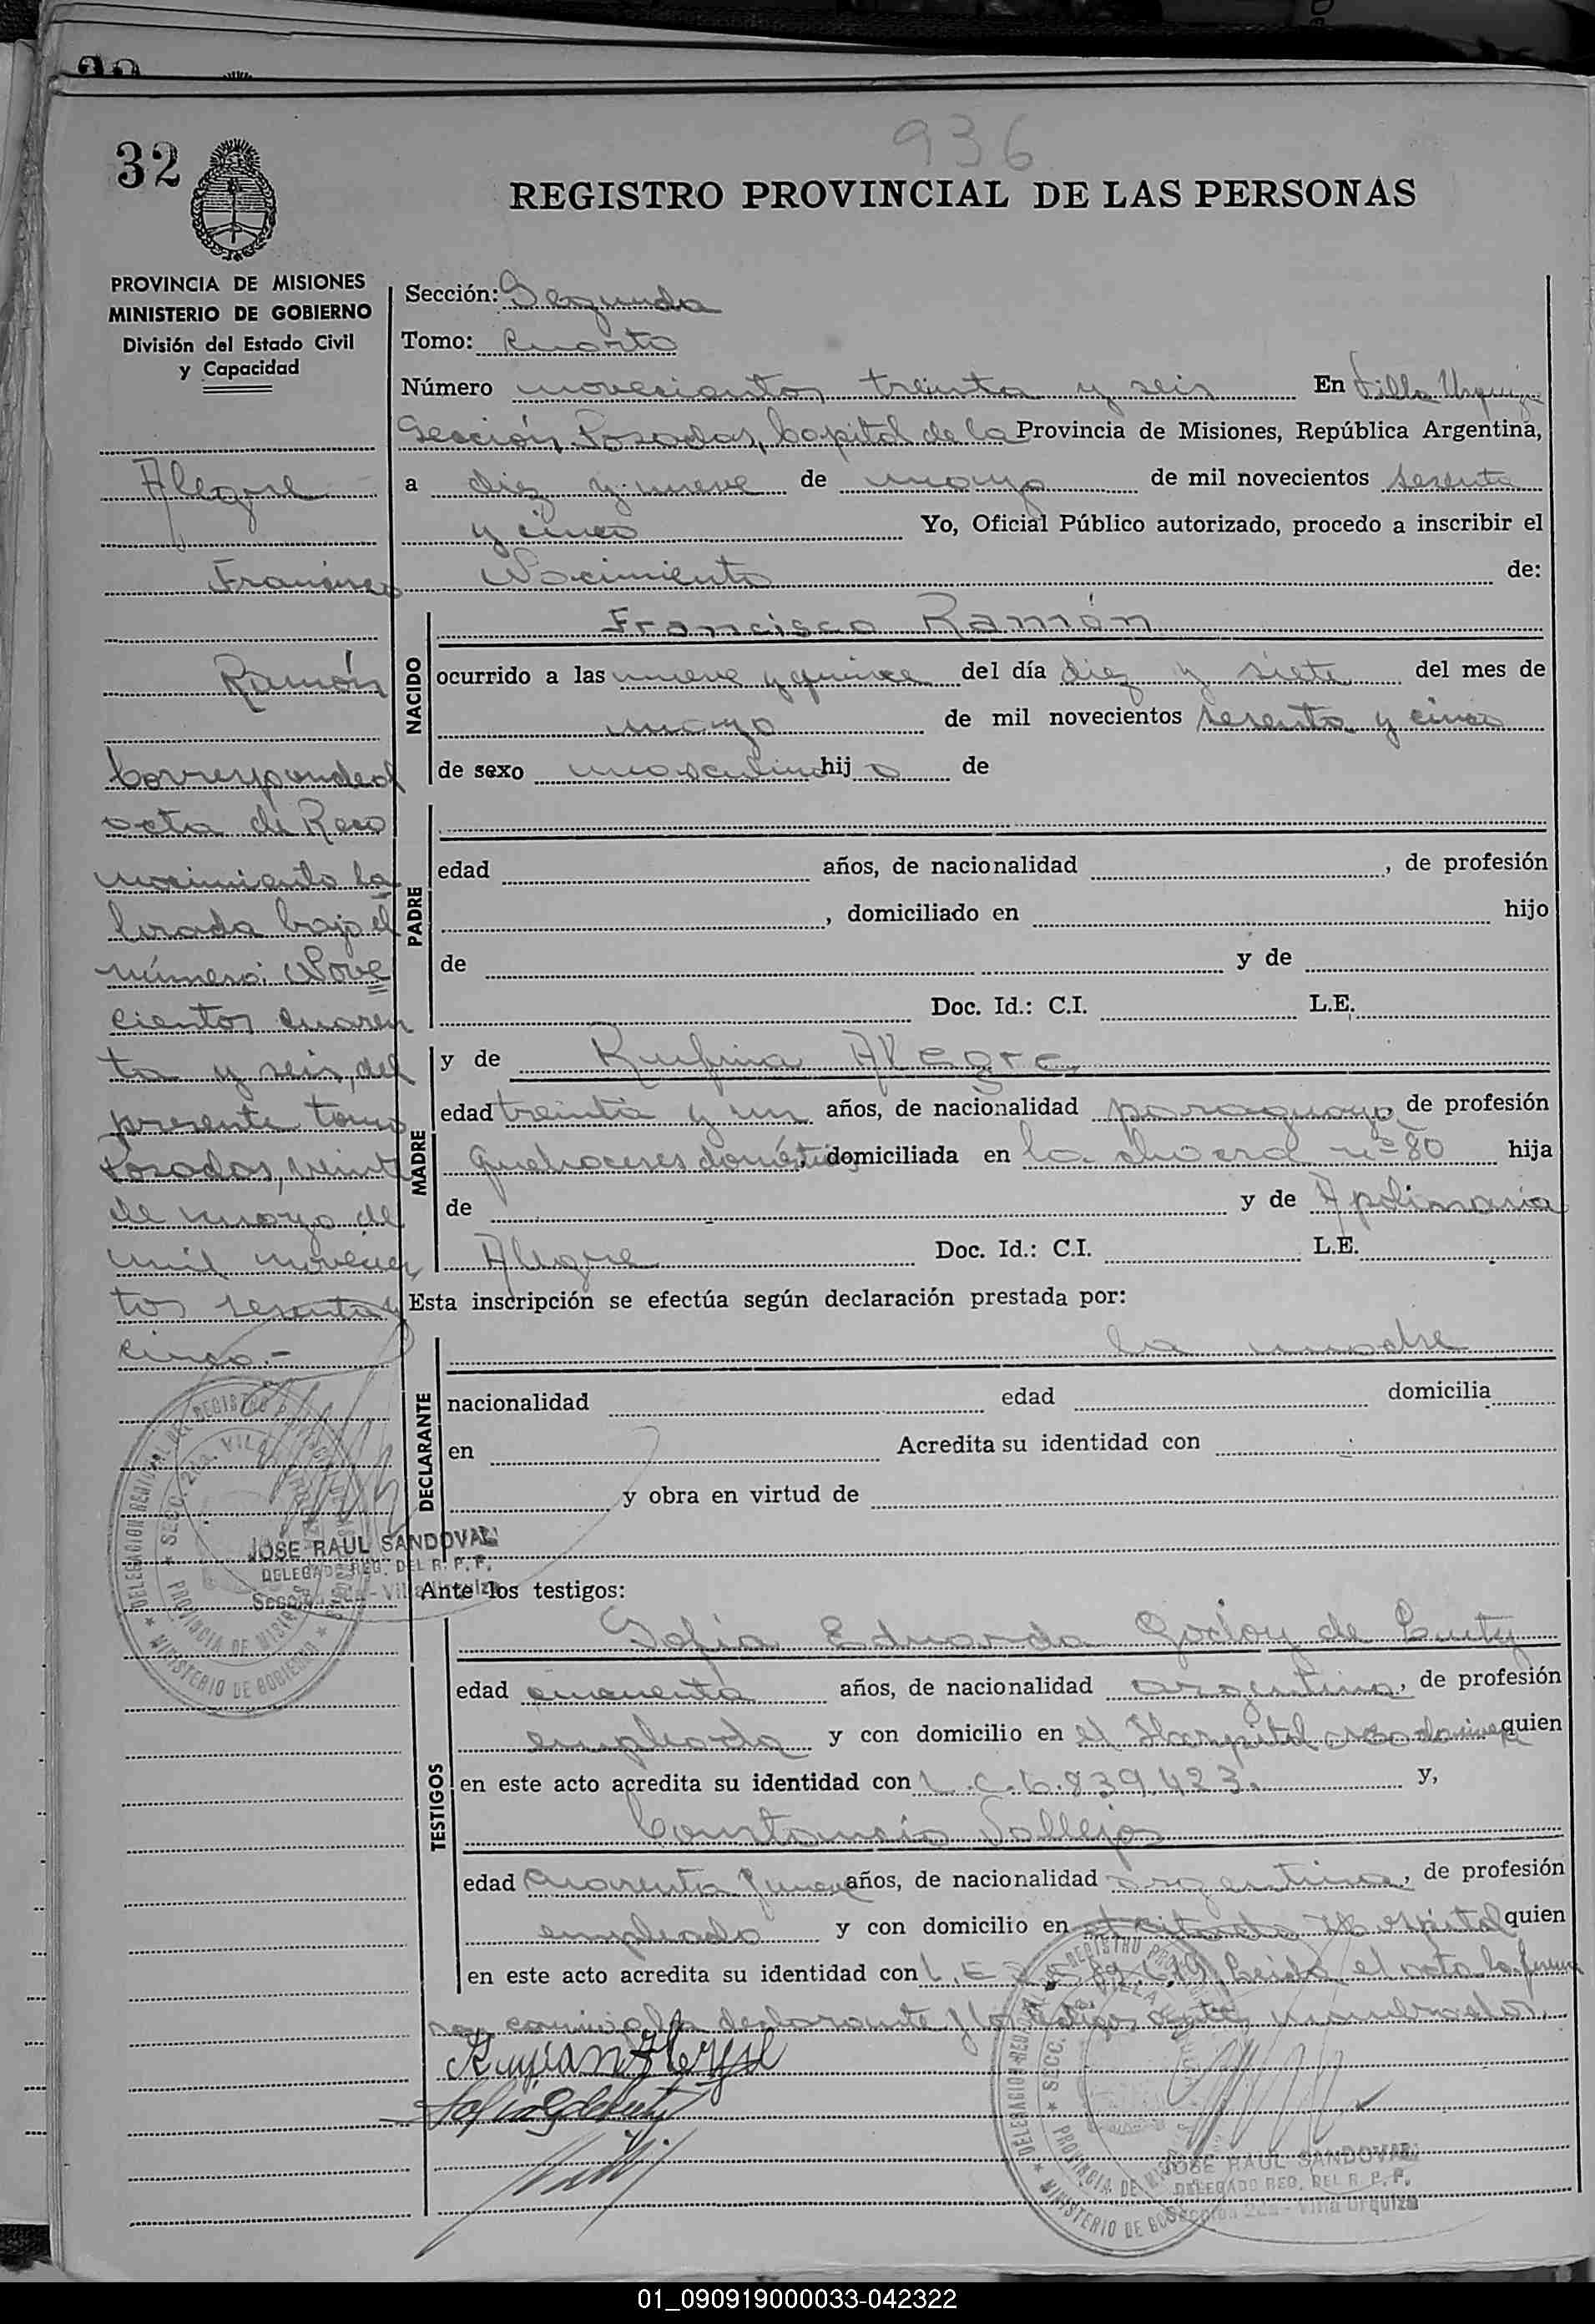 32
936
REGISTRO PROVINCIAL DE LAS PERSONAS
PROVINCIA DE MISIONES
MINISTERIO DE GOBIERNO
División del Estado Civil
y Capacidad
Alegre
Francisco
Ramón
Corresponde al
acta de Reco
nocimiento la
brada bajo el
número: Nove
cientos cuaren
ta y seis, del
presente tomo
Posadas, veinte
de mayo de
mil novecien
tos sesenta y
cinco.-
JOSE RAUL SANDOVAL
DELEGADO REG. DEL R. P. P.
Sección 2da - Villa Urquiza
DELEGACION REGIONAL DEL REGISTRO PROVINCIAL DE LAS PERSONAS
SECC. 2da. VILLA URQUIZA
PROVINCIA DE MISIONES
MINISTERIO DE GOBIERNO
Sección: Segunda
Tomo: Cuarto
Número novecientos treinta y seis En Villa Urquiza
Sección, Posadas, Capital de la Provincia de Misiones, República Argentina,
a diez y nueve de mayo de mil novecientos sesenta
y cinco Yo, Oficial Público autorizado, procedo a inscribir el
Nacimiento de:
NACIDO
Francisco Ramón
ocurrido a las nueve y quince del día diez y siete del mes de
mayo de mil novecientos sesenta y cinco
de sexo masculino hij o de
PADRE
edad años, de nacionalidad , de profesión
, domiciliado en hijo
de y de
Doc. Id.: C.I. L.E.
MADRE
y de Rufina Alegre
edad treinta y un años, de nacionalidad paraguaya, de profesión
Quehaceres domésticos, domiciliada en la chacra nº 80 hija
de y de Apolinaria
Alegre Doc. Id.: C.I. L.E.
Esta inscripción se efectúa según declaración prestada por:
DECLARANTE
la madre
nacionalidad edad domicilia
en Acredita su identidad con
y obra en virtud de
Ante los testigos:
TESTIGOS
Sofía Eduarda Godoy de
edad cincuenta años, de nacionalidad argentina, de profesión
empleada y con domicilio en el Hospital quien
en este acto acredita su identidad con L.C. 6.839.423. y,
Constancio Vallejos
edad cuarenta y nueve años, de nacionalidad argentina, de profesión
empleado y con domicilio en el citado Hospital quien
en este acto acredita su identidad con L.E. Leída el acta la firman
conmigo la declarante y los testigos antes nombrados.
JOSE RAUL SANDOVAL
DELEGADO REG. DEL R. P. P.
Sección 2da - Villa Urquiza
DELEGACION REGIONAL DEL REGISTRO PROVINCIAL
SECC. VILLA
PROVINCIA DE MISIONES
MINISTERIO DE GOBIERNO
01_090919000033-042322